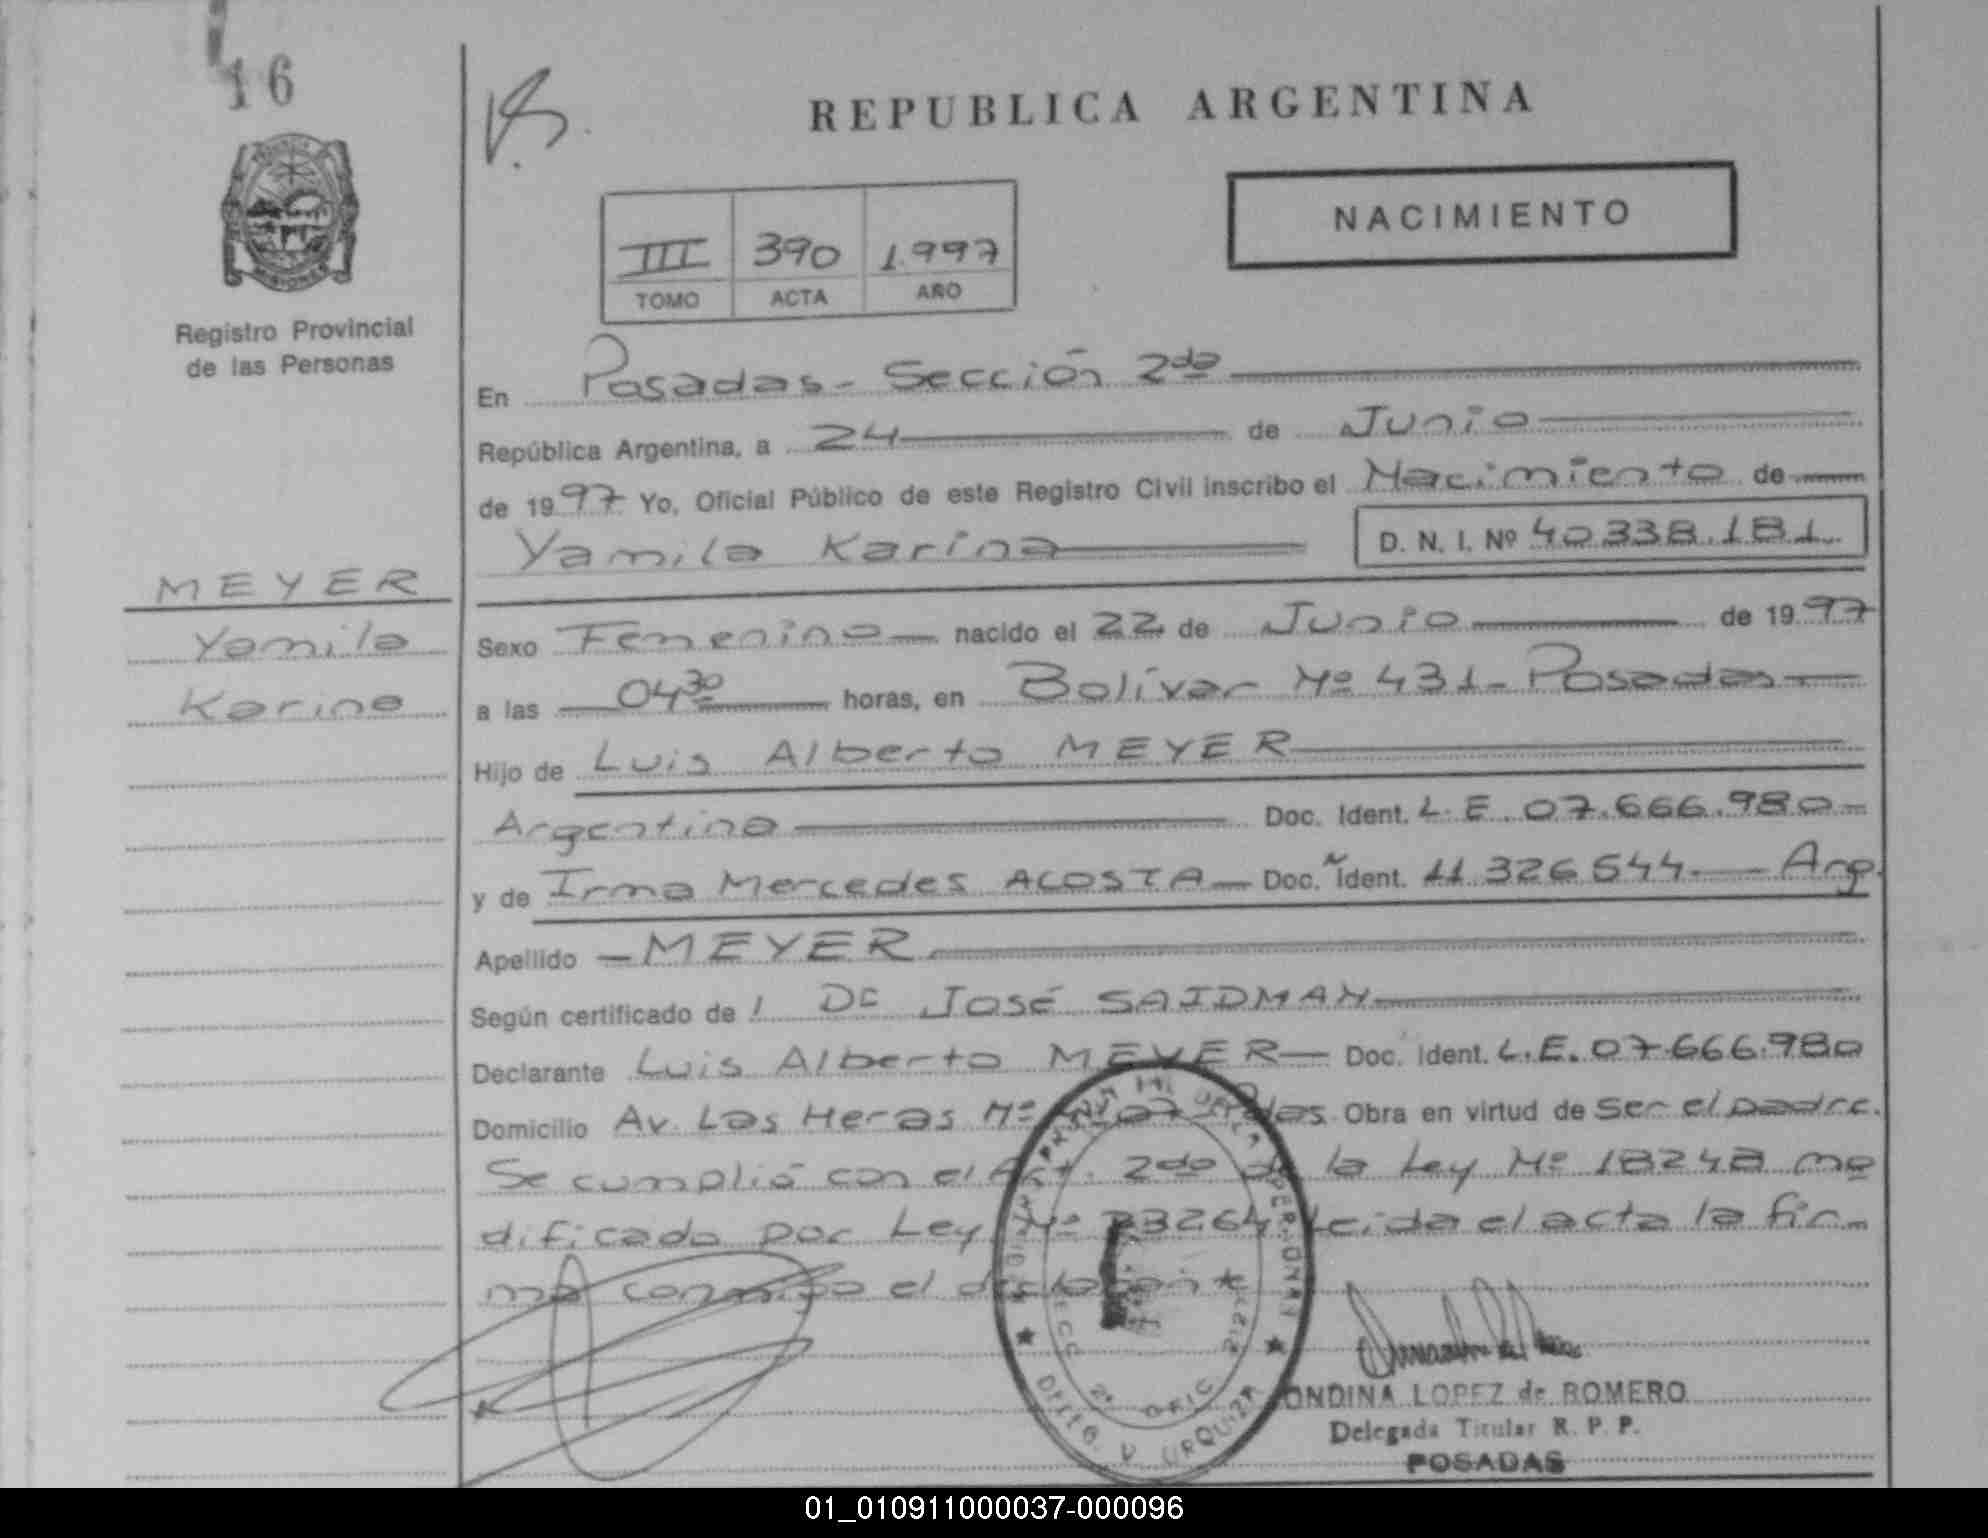 16
REPUBLICA ARGENTINA
NACIMIENTO
III 390 1.997
TOMO ACTA AÑO
Registro Provincial
de las Personas
En Posadas - Sección 2da
República Argentina, a 24 de Junio
de 1997 Yo, Oficial Público de este Registro Civil inscribo el Nacimiento de
Yamila Karina D. N. I. Nº 40.338.181
MEYER
Yamila
Karina
Sexo Femenino nacido el 22 de Junio de 1997
a las 04 30 horas, en Bolívar Nº 431 - Posadas
Hijo de Luis Alberto MEYER
Argentino Doc. Ident. L.E. 07.666.980
y de Irma Mercedes ACOSTA Doc. Ident. 11.326.544 Arg.
Apellido MEYER
Según certificado de l Dr José SAIDMAN
Declarante Luis Alberto MEYER Doc. Ident. L.E. 07.666.980
Domicilio Av. Las Heras Nº Pdas. Obra en virtud de ser el padre.
Se cumplió con el Art. 2do de la Ley Nº 18248 mo
dificado por Ley Nº 23264 Leida el acta la fir-
ma conmigo el declarante
ONDINA LOPEZ de ROMERO
Delegada Titular R. P. P.
POSADAS
2ª OFIC
Dtto. V. URQUIZA
01_010911000037-000096